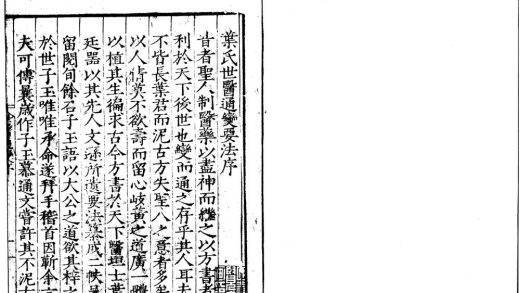 葉氏世醫通變要法序
昔者聖人制醫藥以盡神而繼之以方書者
利於天下後世也變而通之存乎其人耳夫
不皆長葉君而泥古方失聖人之意者多矣
以人情莫不欲壽而留心岐黄之道廣一體
以植其生徧求古今方書於天下醫坦士葉
廷器以其先人文遜所遺要法葉成二帙
留閱旬餘召子玉語以大公之道欲其梓之
於世子玉唯唯承命遂拜手稽首因靳余言
夫可傳曩歲作子玉慕通文嘗許其不泥古